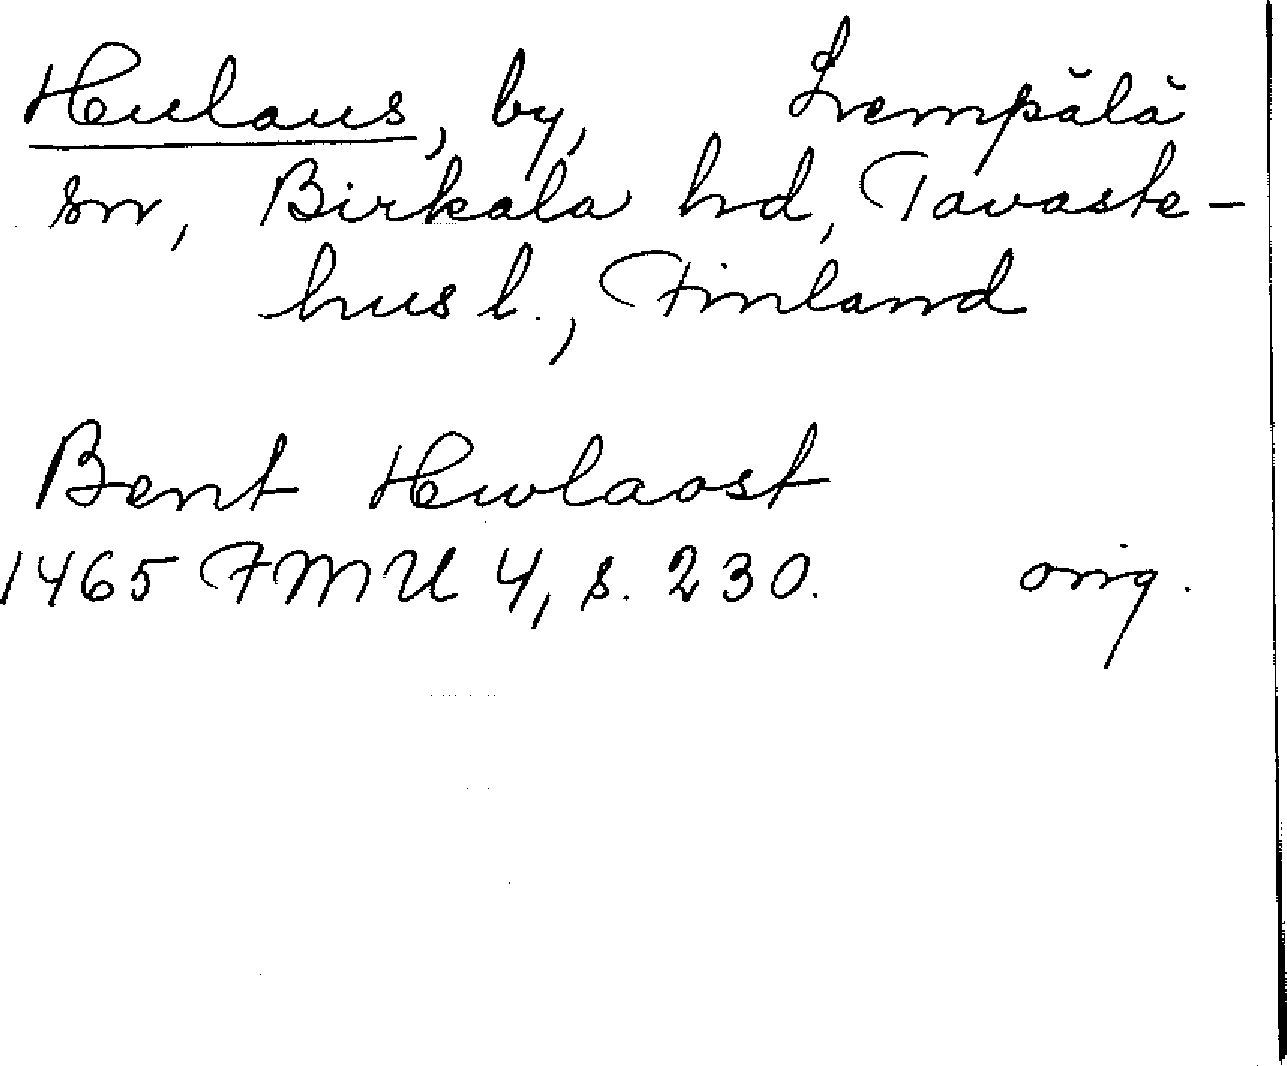 Hulaus, by, Lempälä
sn, Birkala hd, Tavaste-
hus l., Finland
Bent Hwlaost
1465 FMU 4, s. 230. orig.